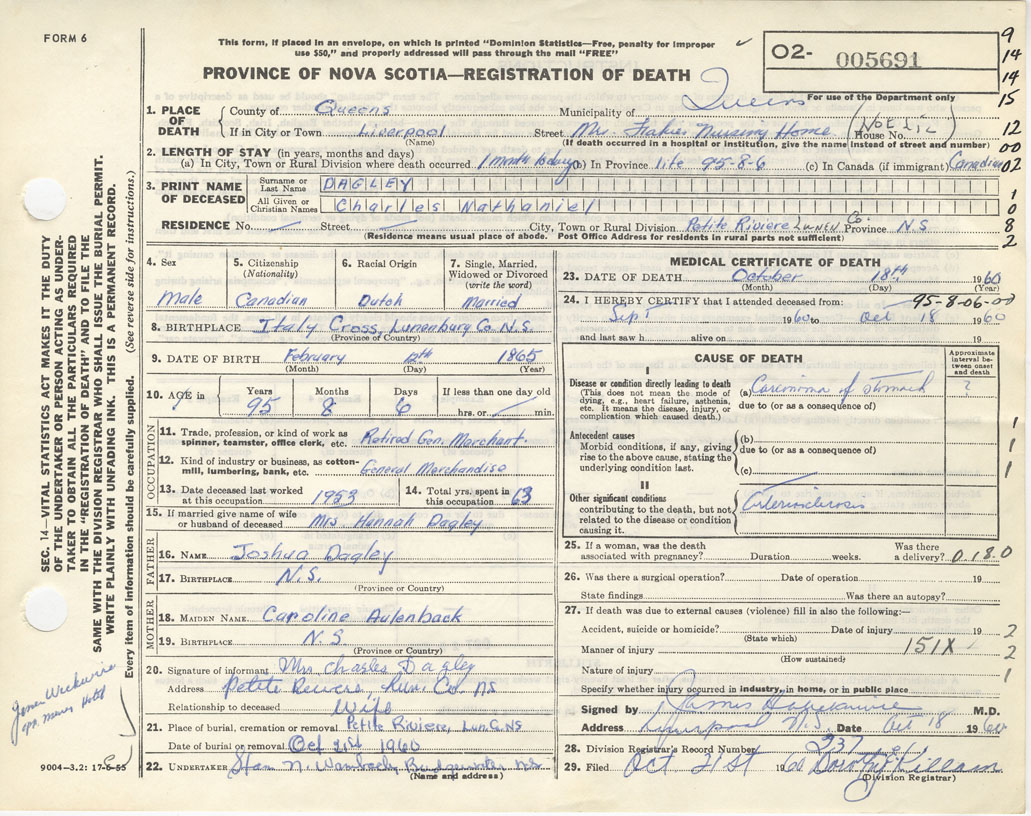 FORM 6
This form, if placed in an envelope, on which is printed "Dominion Statistics—Free, penalty for improper
use $50," and properly addressed will pass through the mail "FREE"
O2- 005691
9
14
14
15
PROVINCE OF NOVA SCOTIA—REGISTRATION OF DEATH
For use of the Department only
1. PLACE OF DEATH
County of Queens Municipality of Queens
If in City or Town Liverpool Street Mrs. Nursing Home House No.
(Name) (If death occurred in a hospital or institution, give the name instead of street and number)
12
00
02
2. LENGTH OF STAY (in years, months and days)
(a) In City, Town or Rural Division where death occurred 1 month (b) In Province life 95-8-6 (c) In Canada (if immigrant) Canadian
3. PRINT NAME OF DECEASED
Surname or Last Name DAGLEY
All Given or Christian Names Charles Nathaniel
1
0
8
2
RESIDENCE No. Street City, Town or Rural Division Petite Riviere LUNEN Co. Province N.S
(Residence means usual place of abode. Post Office Address for residents in rural parts not sufficient)
4. Sex
Male
5. Citizenship
(Nationality)
Canadian
6. Racial Origin
Dutch
7. Single, Married,
Widowed or Divorced
(write the word)
Married
8. BIRTHPLACE Italy Cross, Lunenburg Co. N.S.
(Province of Country)
9. DATE OF BIRTH February 12th 1865
(Month) (Day) (Year)
10. AGE in
Years Months Days If less than one day old
95 8 6 hrs. or min.
OCCUPATION
11. Trade, profession, or kind of work as
spinner, teamster, office clerk, etc. Retired Gen. Merchant.
12. Kind of industry or business, as cotton-
mill, lumbering, bank, etc. General Merchandise
13. Date deceased last worked
at this occupation 1953
14. Total yrs. spent in
this occupation 63
15. If married give name of wife
or husband of deceased Mrs. Hannah Dagley
FATHER
16. NAME Joshua Dagley
17. BIRTHPLACE N.S.
(Province or Country)
MOTHER
18. MAIDEN NAME Caroline Aulenback
19. BIRTHPLACE N.S
(Province or Country)
20. Signature of informant Mrs Charles Dagley
Address Petite Lun. Co. NS
Relationship to deceased Wife
21. Place of burial, cremation or removal Petite Riviere, Lun. Co. NS
Date of burial or removal Oct 21st 1960
22. UNDERTAKER Stan N. Wambach, Bridgewater N.S.
(Name and address)
MEDICAL CERTIFICATE OF DEATH
23. DATE OF DEATH October 18th 1960
(Month) (Day) (Year)
24. I HEREBY CERTIFY that I attended deceased from: 95-8-06-00
Sept 1960 to Oct 18 1960
and last saw h alive on 19
CAUSE OF DEATH
Approximate
interval between
onset
and death
I
Disease or condition directly leading to death
(This does not mean the mode of
dying, e.g., heart failure, asthenia,
etc. It means the disease, injury, or
complication which caused death.)
(a) Carcinoma of stomach ?
due to (or as a consequence of)
Antecedent causes
Morbid conditions, if any, giving
rise to the above cause, stating the
underlying condition last.
(b)
due to (or as a consequence of)
(c)
1
1
1
II
Other significant conditions
contributing to the death, but not
related to the disease or condition
causing it.
Arteriosclerosis
25. If a woman, was the death
associated with pregnancy? Duration weeks. Was there
a delivery? 0.18.0
26. Was there a surgical operation? Date of operation 19
State findings Was there an autopsy?
27. If death was due to external causes (violence) fill in also the following:—
Accident, suicide or homicide? Date of injury 19
(State which)
Manner of injury 151X
(How sustained)
Nature of injury
2
2
1
Specify whether injury occurred in industry, in home, or in public place
Signed by James M.D.
Address Liverpool N.S. Date Oct 18 1960
28. Division Registrar's Record Number 237
29. Filed Oct 21st 1960 Dorothy Killam
(Division Registrar)
SEC. 14—VITAL STATISTICS ACT MAKES IT THE DUTY
OF THE UNDERTAKER OR PERSON ACTING AS UNDER-
TAKER TO OBTAIN ALL THE PARTICULARS REQUIRED
IN THE "REGISTRATION OF DEATH" AND TO FILE THE
SAME WITH THE DIVISION REGISTRAR WHO SHALL ISSUE THE BURIAL PERMIT.
WRITE PLAINLY WITH UNFADING INK. THIS IS A PERMANENT RECORD.
Every item of information should be carefully supplied. (See reverse side for instructions.)
9004—3.2: 17-6-55